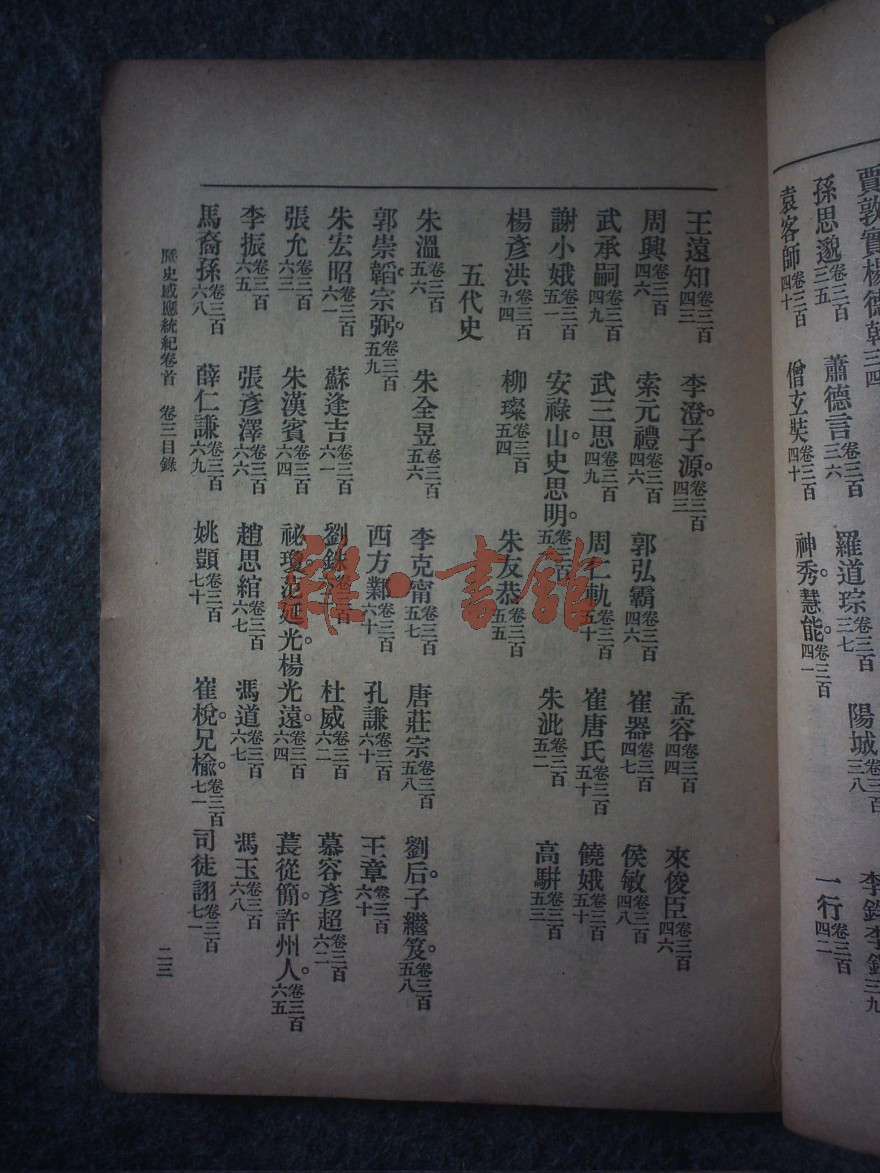 賈敦實楊德幹三四
孫思邈卷三百三五　蕭德言卷三百三六　羅道琮卷三百三七　陽城卷三百三八
袁客師卷三百四十　僧玄奘卷三百四十　神秀。慧能。卷三百四一　一行卷三百四二
王遠知卷三百四三　李澄。子源。卷三百四三　孟容卷三百四四　來俊臣卷三百四六
周興卷三百四六　索元禮卷三百四六　郭弘霸卷三百四六　崔器卷三百四七　侯敏卷三百四八
武承嗣卷三百四九　武三思卷三百四九　周仁軌卷三百五十　崔唐氏卷三百五十　饒娥卷三百五十
謝小娥卷三百五一　安祿山。史思明。卷三百五　朱泚卷三百五二　高駢卷三百五三
楊彥洪卷三百五四　柳璨卷三百五四　朱友恭卷三百五五
五代史
朱溫卷三百五六　朱全昱卷三百五六　李克甯卷三百五七　唐莊宗卷三百五八　劉后。子繼笈。卷三百五八
郭崇韜。宗弼。卷三百五九　西方鄴卷三百六十　孔謙卷三百六十　王章卷三百六十
朱宏昭卷三百六一　蘇逢吉卷三百六一　劉銖卷三百　杜威卷三百六二　慕容彥超卷三百六二
張允卷三百六三　朱漢賓卷三百六四　祕瓊范延光。楊光遠。卷三百六四　萇從簡。許州人。卷三百六五
李振卷三百六五　張彥澤卷三百六六　趙思綰卷三百六七　馮道卷三百六七　馮玉卷三百六八
馬裔孫卷三百六八　薛仁謙卷三百六九　姚顗卷三百七十　崔梲。兄檢。卷三百七一　司徒詡卷三百七一
歷史感應統紀卷首　卷三目錄　二三
雜·書館